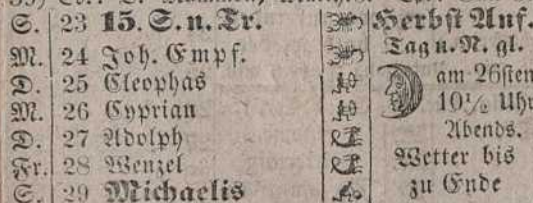 S. 23 15. S. n. Tr. Herbst Anf.
M. 24 Joh. Empf. Tag u. N. gl.
D. 25 Cleophas am 26sten
M. 26 Cyprian 10½ Uhr
D. 27 Adolph Abends.
Fr. 28 Wenzel Wetter bis
S. 29 Michaelis zu Ende